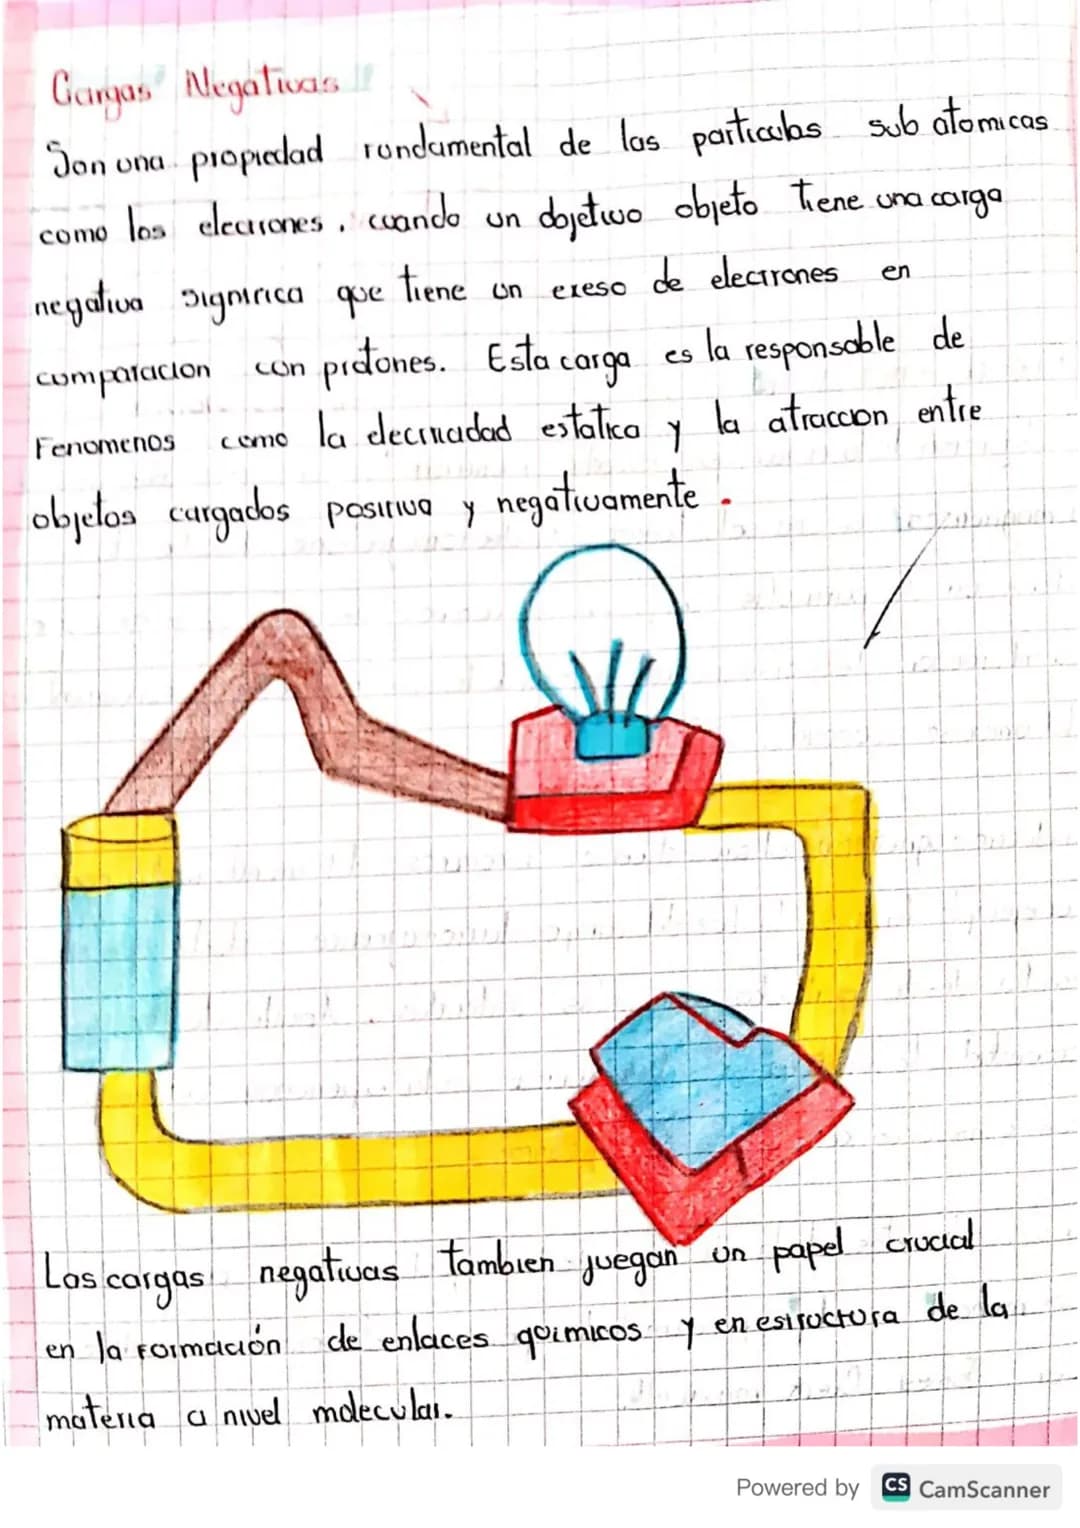 Cargas Negativas
Son una propiedad fundamental de las particulas sub atomicas
como los electrones, cuando un dojetivo objeto tiene una carga
negativa significa que tiene un exeso de electrones en
comparacion con protones. Esta carga es la responsable de
Fenomenos como la electricidad estatica y la atraccion entre
objetos cargados positiva y negativamente.
Las cargas negativas tambien juegan un papel crucial
en la formación de enlaces quimicos y en estructura de la
materia a nivel molecular.
Powered by CS CamScanner